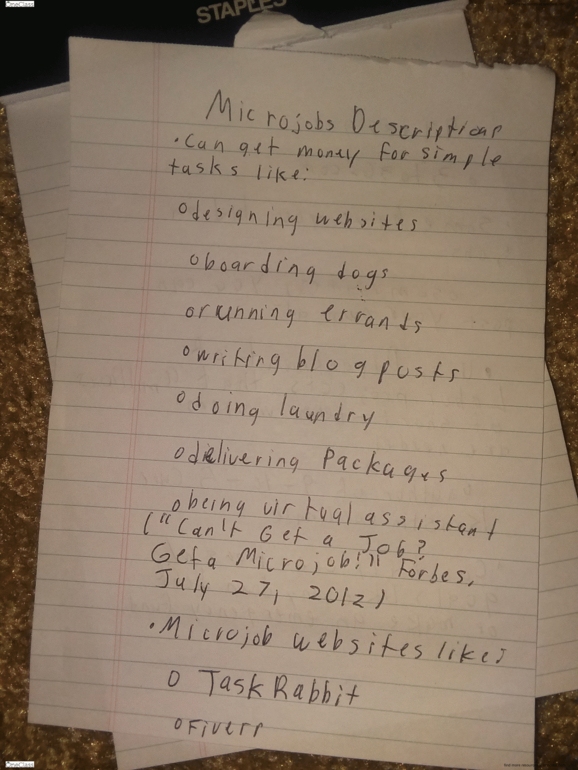 OneClass
STAPLES
Microjobs Description
•Can get money for simple
tasks like:
o designing websites
o boarding dogs
o running errands
o writing blog posts
o doing laundry
o delivering Packages
o being virtual assistant
("Can't Get a Job?
Get a Microjob!" Forbes,
July 27, 2012)
•Microjob websites like:
o TaskRabbit
o Fiverr
OneClass